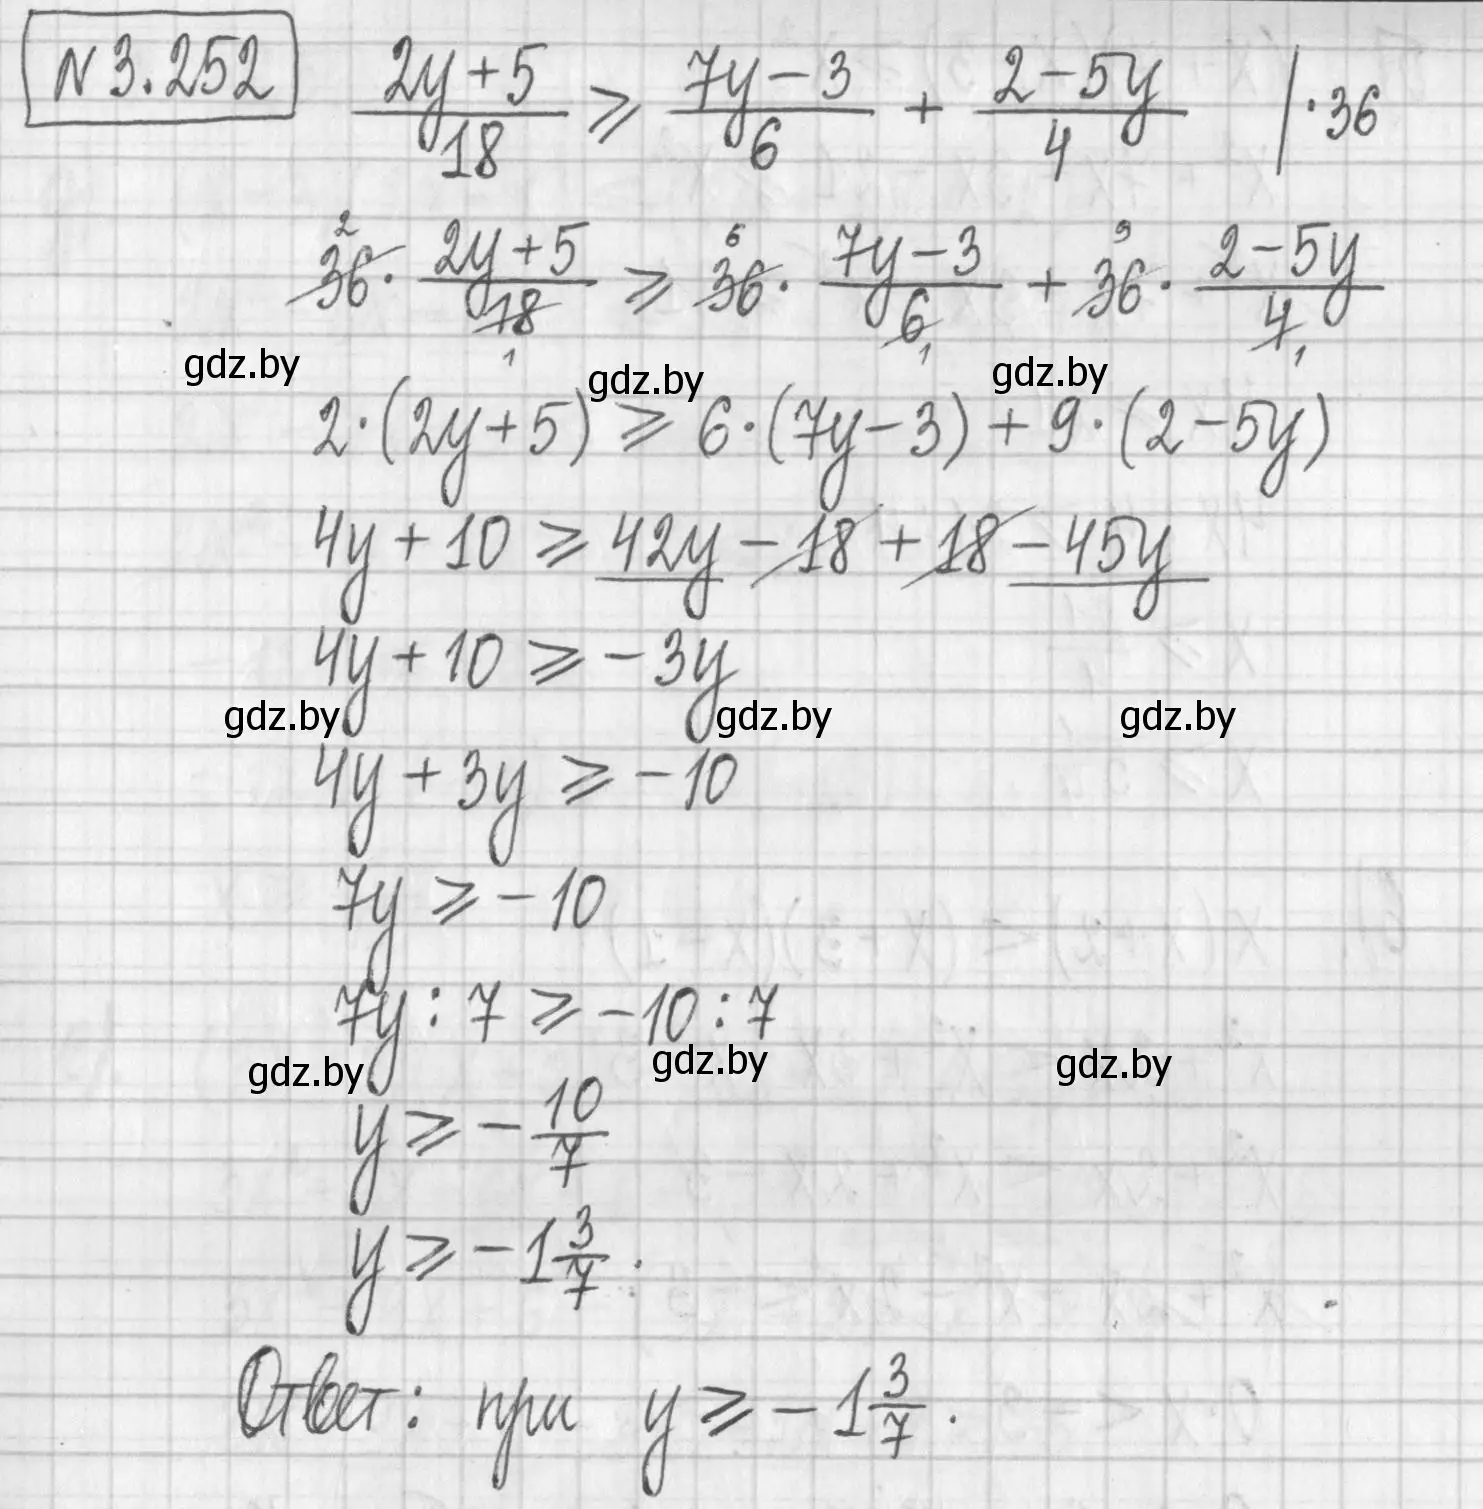 N 3.252 (2y+5)/18 ⩾ (7y−3)/6 + (2−5y)/4 | ·36
36² · (2y+5)/18₁ ⩾ 36⁶ · (7y−3)/6₁ + 36⁹ · (2−5y)/4₁
gdz.by gdz.by gdz.by
2·(2y+5) ⩾ 6·(7y−3) + 9·(2−5y)
4y + 10 ⩾ 42y − 18 + 18 − 45y
4y + 10 ⩾ −3y
gdz.by gdz.by gdz.by
4y + 3y ⩾ −10
7y ⩾ −10
7y : 7 ⩾ −10 : 7
gdz.by gdz.by gdz.by
y ⩾ −10/7
y ⩾ −1 3/7.
Ответ: при y ⩾ −1 3/7.